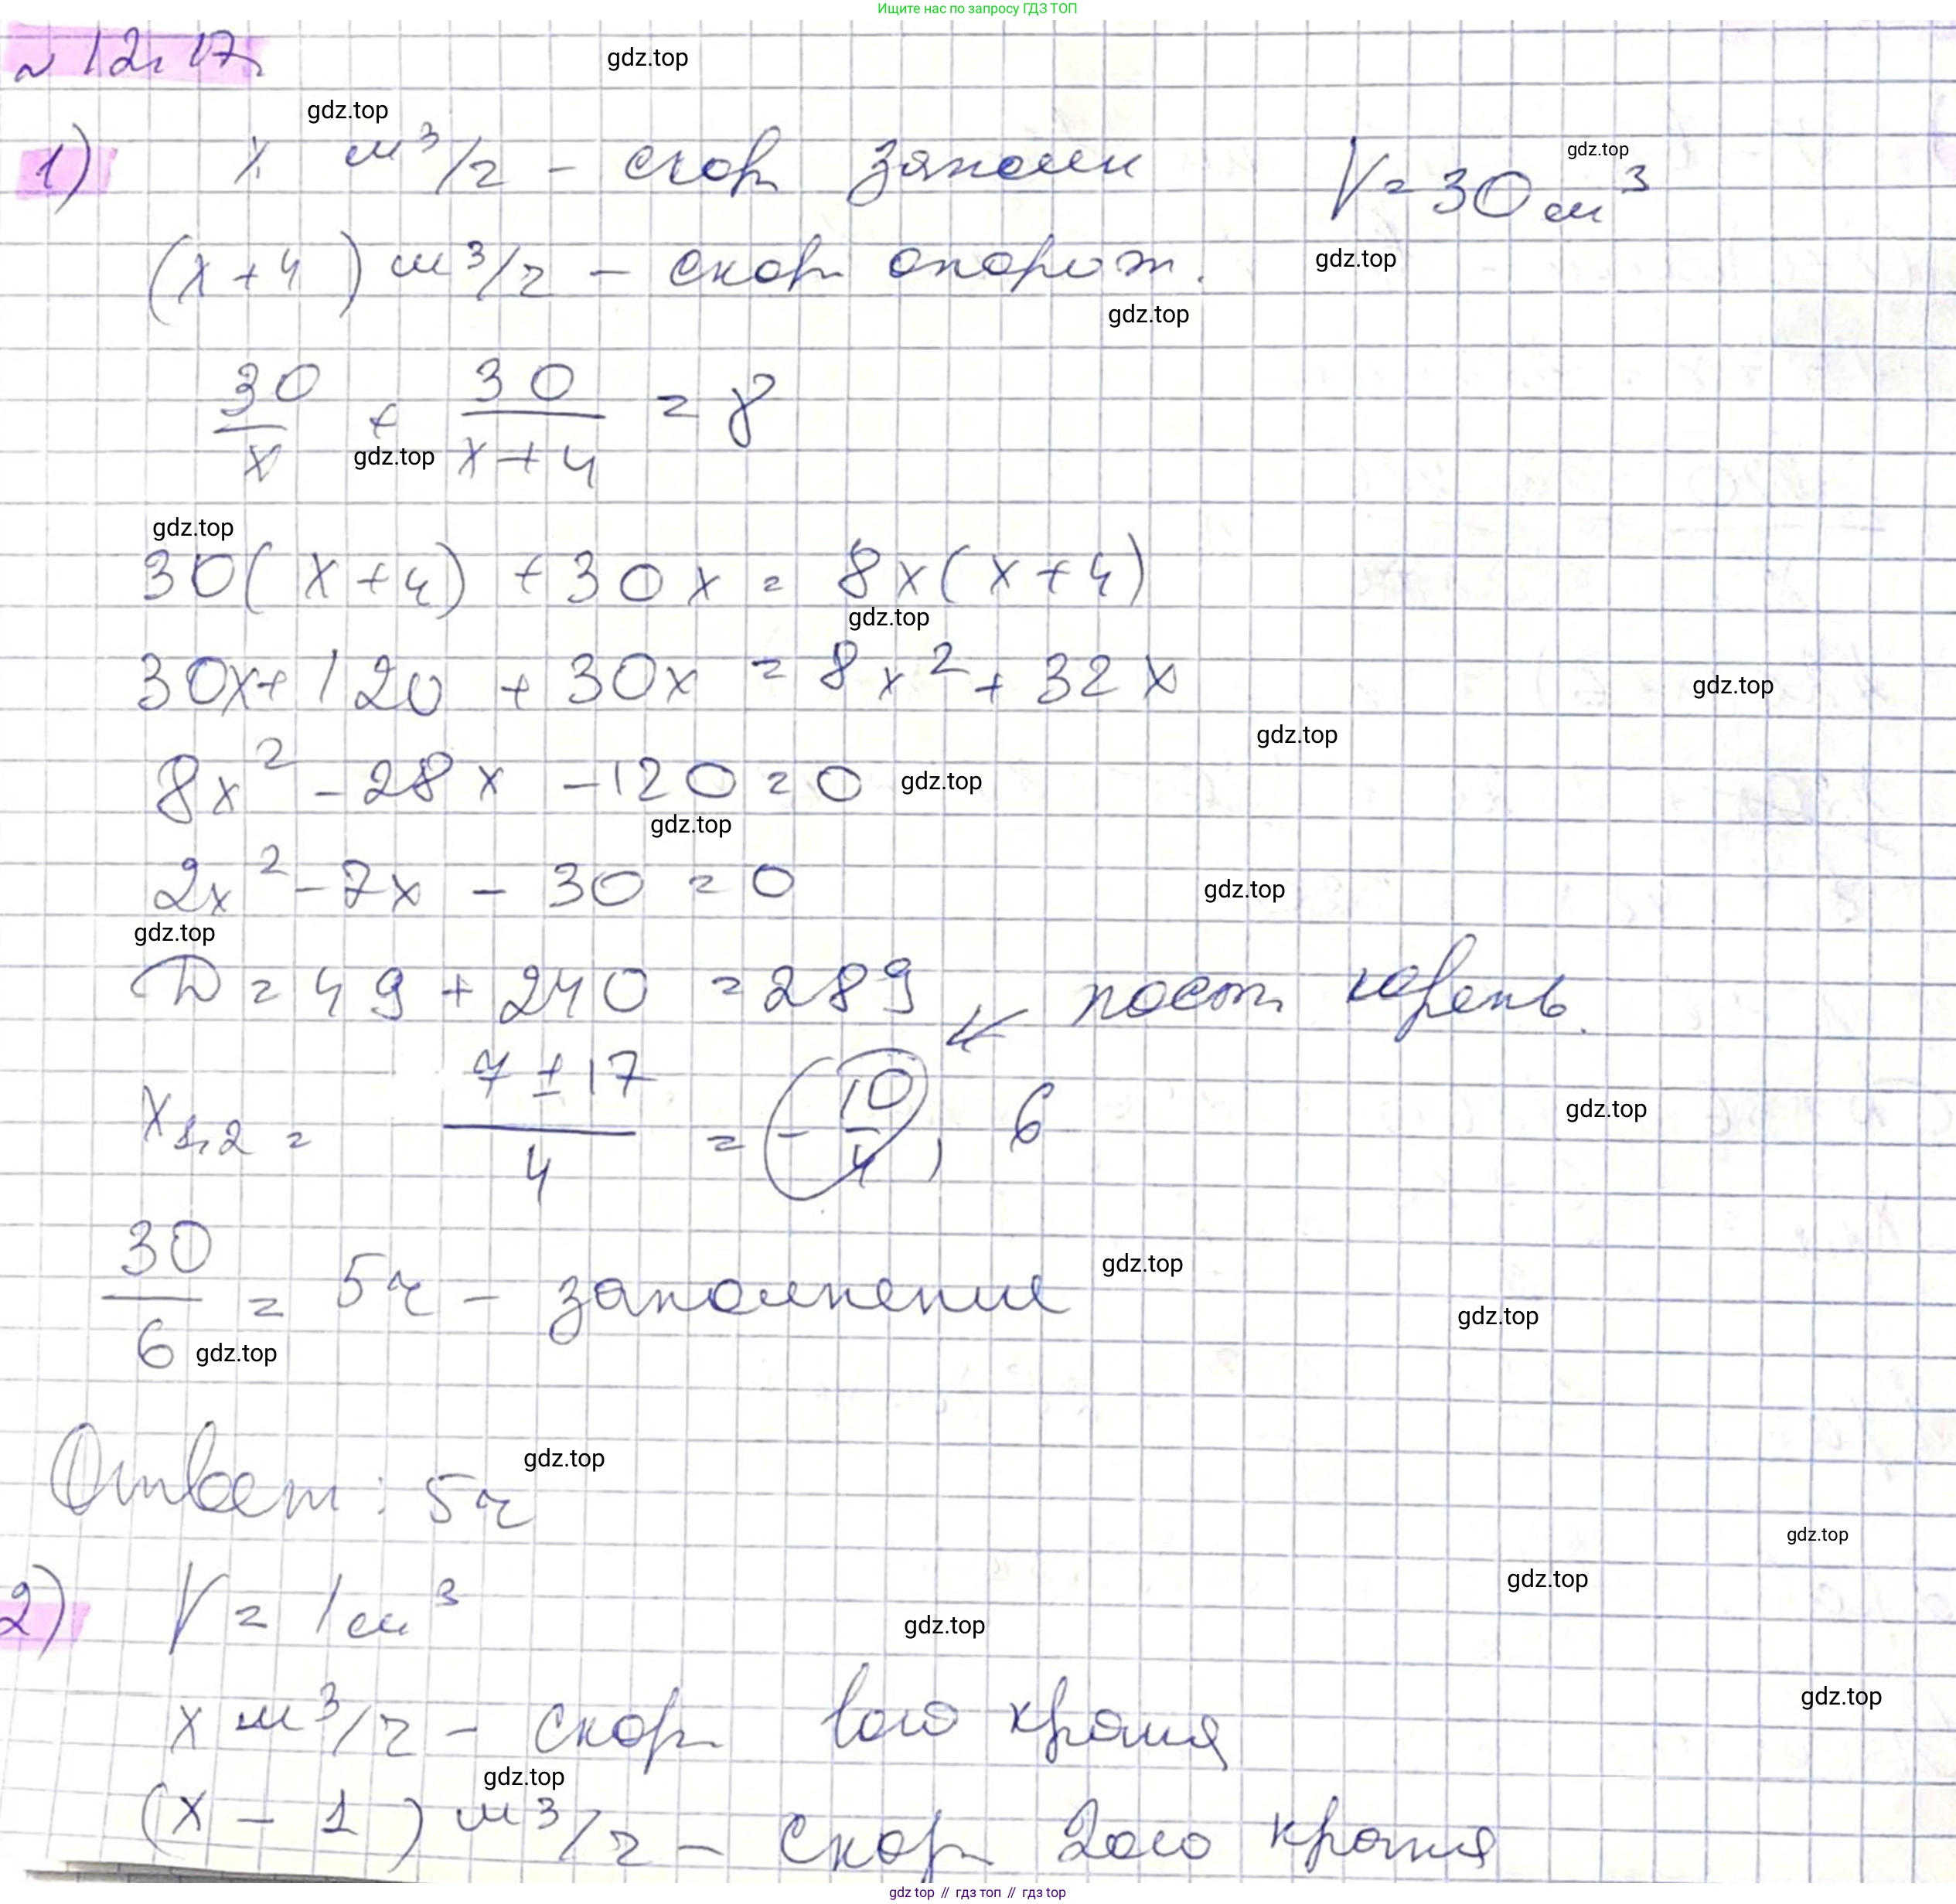 Ищите нас по запросу ГДЗ ТОП
№ 12.17.
gdz.top
gdz.top
1) x м³/ч - скор заполн V = 30 м³
gdz.top
(x+4) м³/ч - скор опорож.
gdz.top
gdz.top
30/x + 30/(x+4) = 8
gdz.top
gdz.top
30(x+4) + 30x = 8x(x+4)
gdz.top
30x + 120 + 30x = 8x² + 32x
gdz.top
gdz.top
8x² - 28x - 120 = 0
gdz.top
gdz.top
2x² - 7x - 30 = 0
gdz.top
gdz.top
D = 49 + 240 = 289 пост. корень.
x1,2 = (7 ± 17)/4 = -10/4, 6
gdz.top
30/6 = 5ч - заполнение
gdz.top
gdz.top
gdz.top
Ответ: 5ч
gdz.top
gdz.top
gdz.top
2) V = 1 м³
gdz.top
x м³/ч - скор 1ого крана
gdz.top
gdz.top
(x - 1) м³/ч - скор 2ого крана
gdz top // гдз топ // гдз top